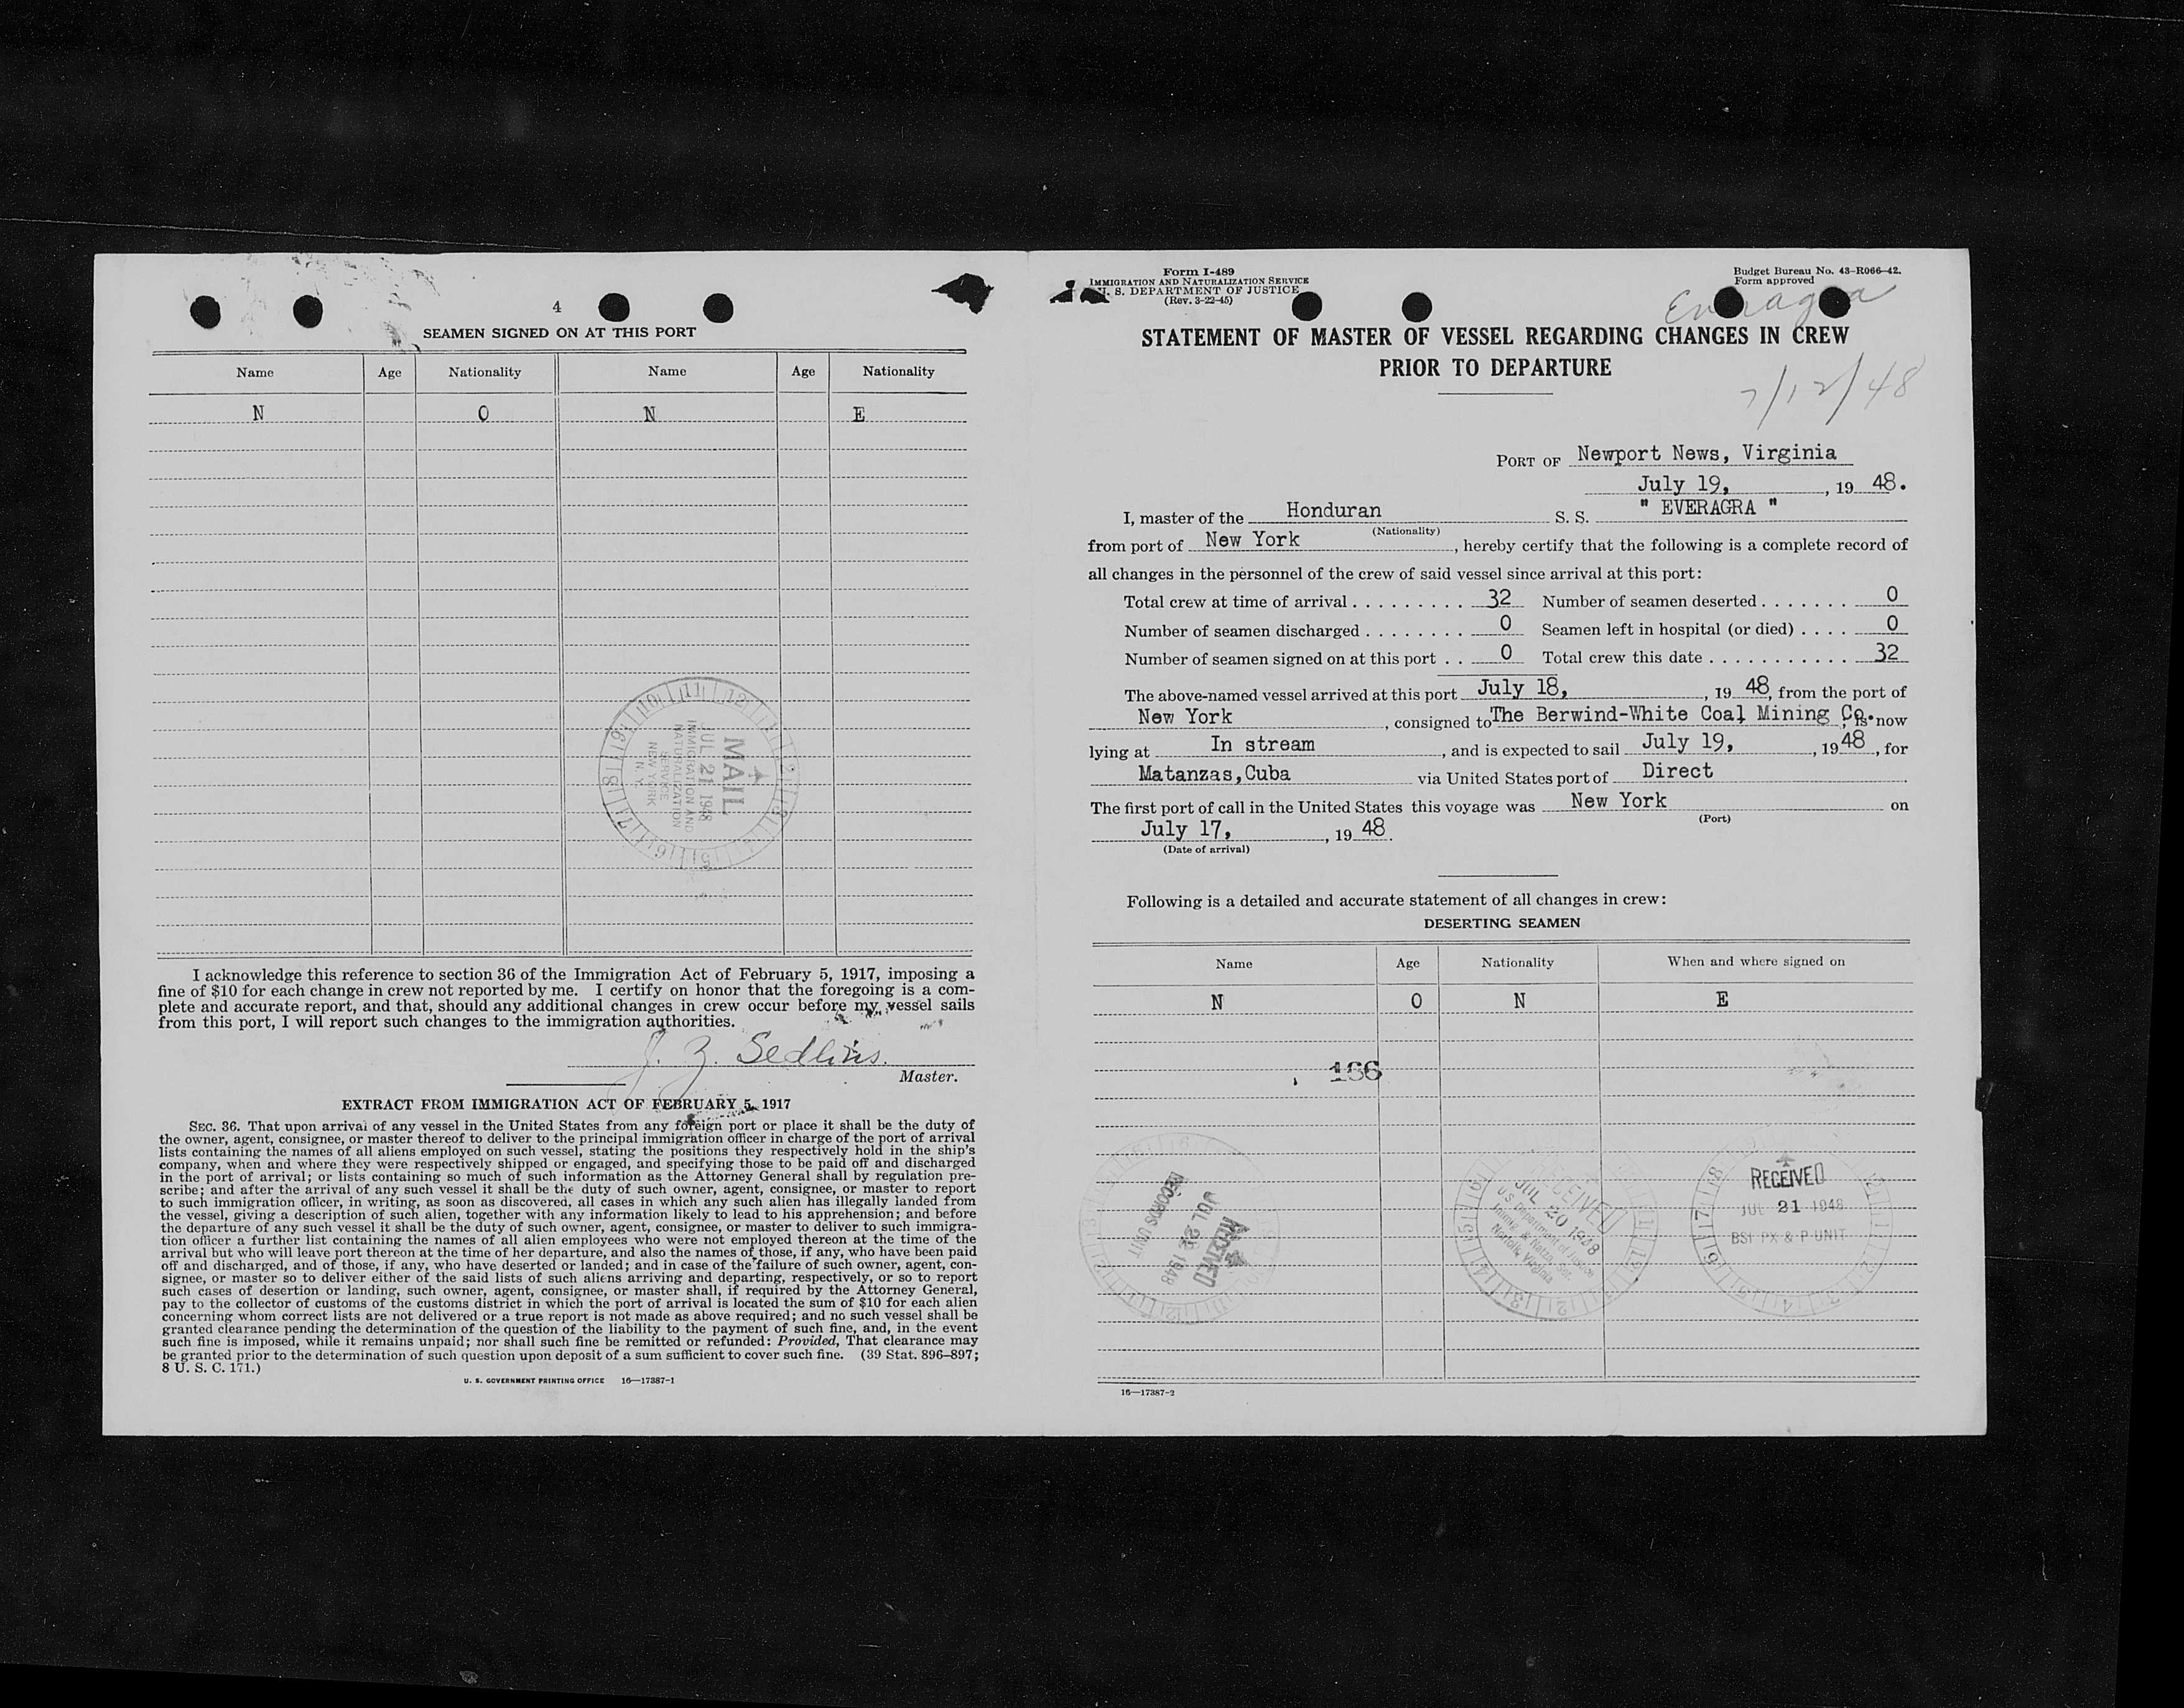 4
SEAMEN SIGNED ON AT THIS PORT
Name Age Nationality Name Age Nationality
N O N E
MAIL
JUL 21 1948
IMMIGRATION AND
NATURALIZATION
SERVICE
NEW YORK
N. Y.
I acknowledge this reference to section 36 of the Immigration Act of February 5, 1917, imposing a
fine of $10 for each change in crew not reported by me. I certify on honor that the foregoing is a com-
plete and accurate report, and that, should any additional changes in crew occur before my vessel sails
from this port, I will report such changes to the immigration authorities.
J. Z. Sedlins.
Master.
EXTRACT FROM IMMIGRATION ACT OF FEBRUARY 5, 1917
SEC. 36. That upon arrival of any vessel in the United States from any foreign port or place it shall be the duty of
the owner, agent, consignee, or master thereof to deliver to the principal immigration officer in charge of the port of arrival
lists containing the names of all aliens employed on such vessel, stating the positions they respectively hold in the ship's
company, when and where they were respectively shipped or engaged, and specifying those to be paid off and discharged
in the port of arrival; or lists containing so much of such information as the Attorney General shall by regulation pre-
scribe; and after the arrival of any such vessel it shall be the duty of such owner, agent, consignee, or master to report
to such immigration officer, in writing, as soon as discovered, all cases in which any such alien has illegally landed from
the vessel, giving a description of such alien, together with any information likely to lead to his apprehension; and before
the departure of any such vessel it shall be the duty of such owner, agent, consignee, or master to deliver to such immigra-
tion officer a further list containing the names of all alien employees who were not employed thereon at the time of the
arrival but who will leave port thereon at the time of her departure, and also the names of those, if any, who have been paid
off and discharged, and of those, if any, who have deserted or landed; and in case of the failure of such owner, agent, con-
signee, or master so to deliver either of the said lists of such aliens arriving and departing, respectively, or so to report
such cases of desertion or landing, such owner, agent, consignee, or master shall, if required by the Attorney General,
pay to the collector of customs of the customs district in which the port of arrival is located the sum of $10 for each alien
concerning whom correct lists are not delivered or a true report is not made as above required; and no such vessel shall be
granted clearance pending the determination of the question of the liability to the payment of such fine, and, in the event
such fine is imposed, while it remains unpaid; nor shall such fine be remitted or refunded: Provided, That clearance may
be granted prior to the determination of such question upon deposit of a sum sufficient to cover such fine. (39 Stat. 896–897;
8 U. S. C. 171.)
U. S. GOVERNMENT PRINTING OFFICE 16—17387-1
Form I-489
IMMIGRATION AND NATURALIZATION SERVICE
U. S. DEPARTMENT OF JUSTICE
(Rev. 3-22-45)
Budget Bureau No. 43-R066-42.
Form approved
Everagra
STATEMENT OF MASTER OF VESSEL REGARDING CHANGES IN CREW
PRIOR TO DEPARTURE
7/12/48
PORT OF Newport News, Virginia
July 19, , 19 48.
I, master of the Honduran S. S. " EVERAGRA "
(Nationality)
from port of New York , hereby certify that the following is a complete record of
all changes in the personnel of the crew of said vessel since arrival at this port:
Total crew at time of arrival . . . . . . . . . 32 Number of seamen deserted . . . . . . . 0
Number of seamen discharged . . . . . . . . 0 Seamen left in hospital (or died) . . . . 0
Number of seamen signed on at this port . . 0 Total crew this date . . . . . . . . . . . 32
The above-named vessel arrived at this port July 18, , 19 48, from the port of
New York , consigned to The Berwind-White Coal Mining Co., is now
lying at In stream , and is expected to sail July 19, , 19 48, for
Matanzas, Cuba via United States port of Direct
The first port of call in the United States this voyage was New York on
(Port)
July 17, , 19 48.
(Date of arrival)
Following is a detailed and accurate statement of all changes in crew:
DESERTING SEAMEN
Name Age Nationality When and where signed on
N O N E
166
RECEIVED
JUL 22 1948
RECORDS UNIT
RECEIVED
JUL 20 1948
U S Department of Justice
Immig. & Natzn Ser.
Norfolk, Virginia
RECEIVED
JUL 21 1948
BSI PX & P UNIT
16—17387-2